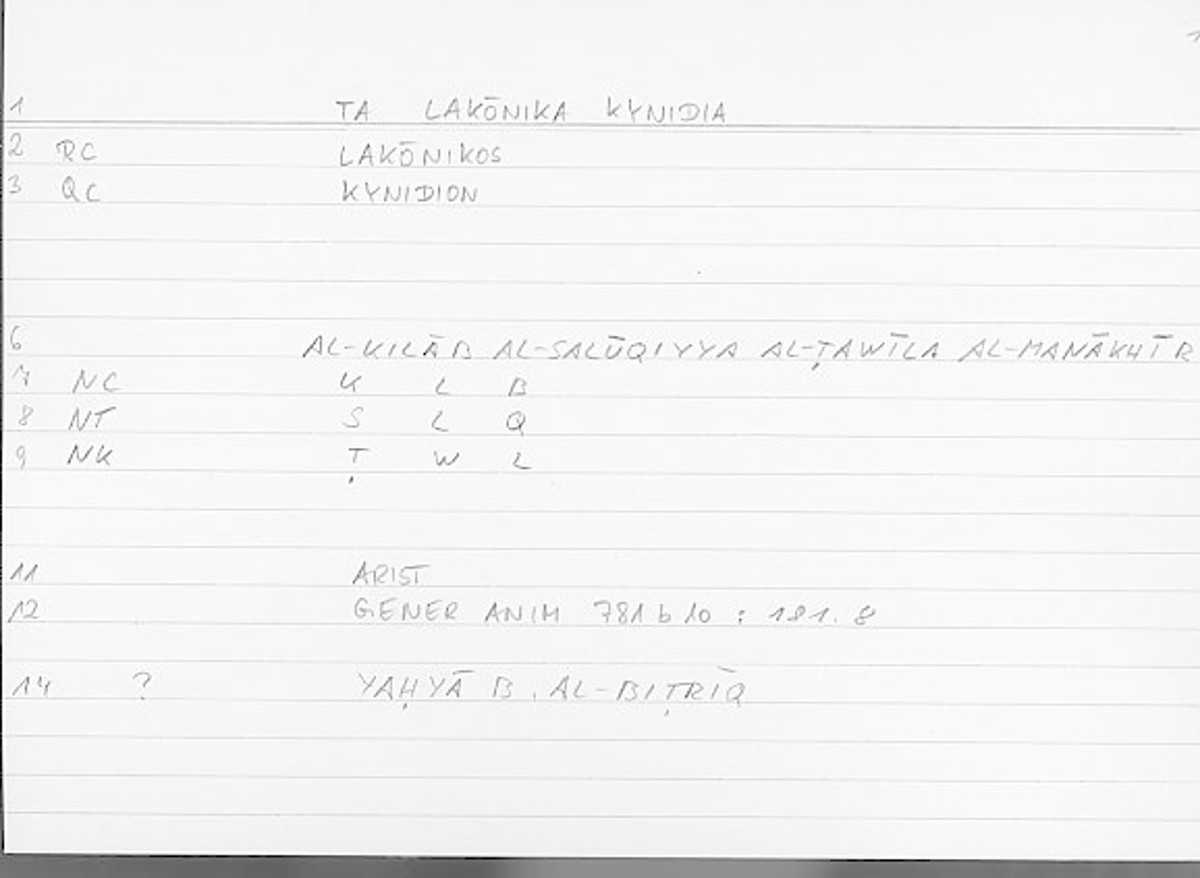 1 TA LAKŌNIKA KYNIDIA
2 RC LAKŌNIKOS
3 QC KYNIDION
6 AL-KILĀB AL-SALŪQIYYA AL-ṬAWĪLA AL-MANĀKHĪR
7 NC K L B
8 NT S L Q
9 NK Ṭ W L
11 ARIST
12 GENER ANIM 781 b 10 : 181.8
14 ? YAḤYĀ B. AL-BIṬRĪQ